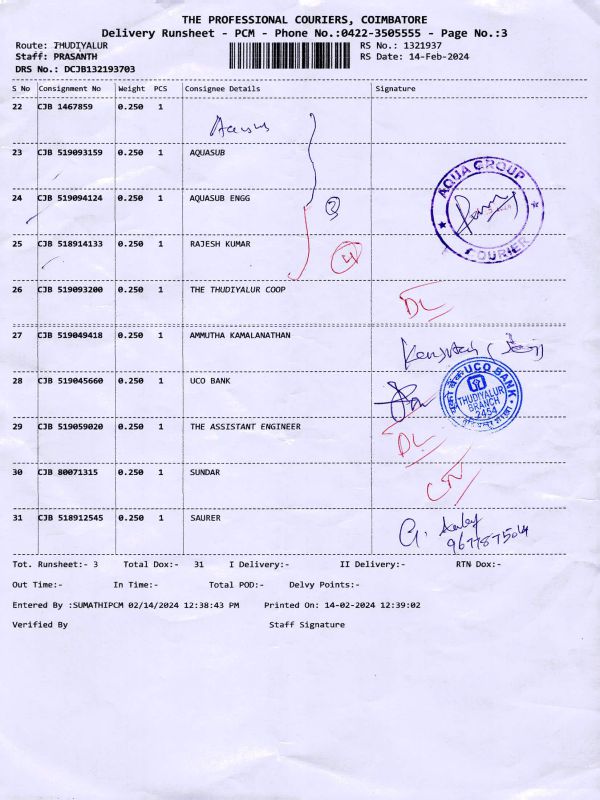 THE PROFESSIONAL COURIERS, COIMBATORE
Delivery Runsheet - PCM - Phone No.:0422-3505555 - Page No.:3
Route: THUDIYALUR RS No.: 1321937
Staff: PRASANTH RS Date: 14-Feb-2024
DRS No.: DCJB132193703
S No Consignment No Weight PCS Consignee Details Signature
22 CJB 1467859 0.250 1
23 CJB 519093159 0.250 1 AQUASUB
AQUA GROUP
COURIER
24 CJB 519094124 0.250 1 AQUASUB ENGG
3
25 CJB 518914133 0.250 1 RAJESH KUMAR
4
26 CJB 519093200 0.250 1 THE THUDIYALUR COOP
DL
27 CJB 519049418 0.250 1 AMMUTHA KAMALANATHAN
28 CJB 519045660 0.250 1 UCO BANK
UCO BANK
THUDIYALUR
BRANCH
2454
29 CJB 519059020 0.250 1 THE ASSISTANT ENGINEER
DL
30 CJB 80071315 0.250 1 SUNDAR
31 CJB 518912545 0.250 1 SAURER
G.
9677875014
Tot. Runsheet:- 3 Total Dox:- 31 I Delivery:- II Delivery:- RTN Dox:-
Out Time:- In Time:- Total POD:- Delvy Points:-
Entered By :SUMATHIPCM 02/14/2024 12:38:43 PM Printed On: 14-02-2024 12:39:02
Verified By Staff Signature